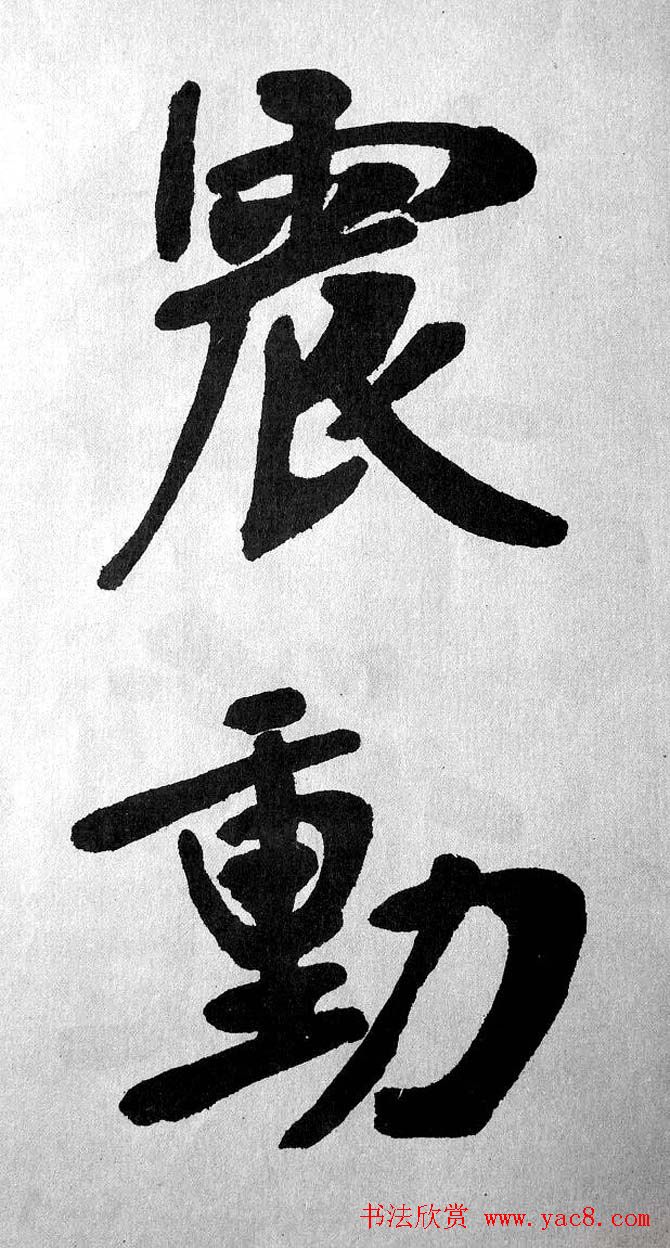 震
動
书法欣赏 www.yac8.com